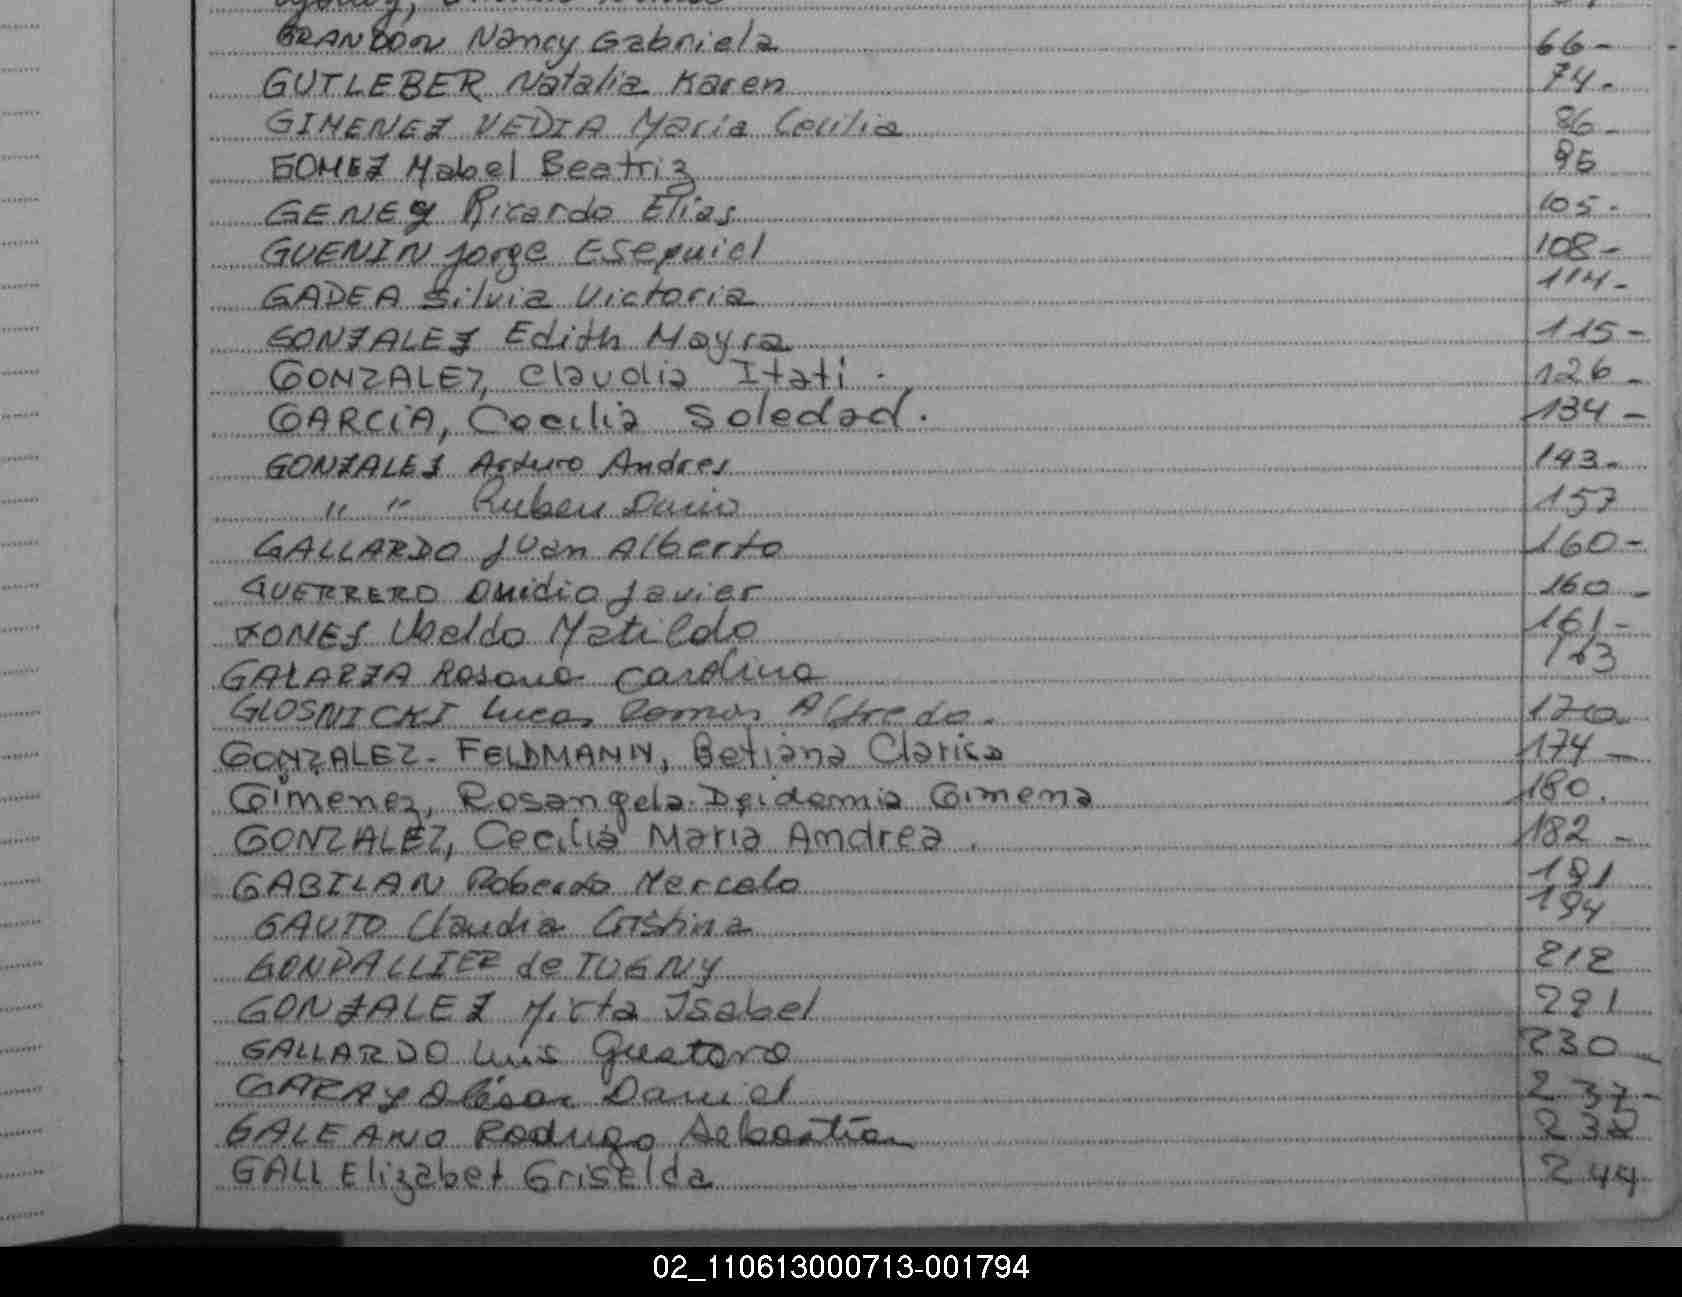 GRANDON Nancy Gabriela 66-
GUTLEBER Natalia Karen 74-
GIMENEZ VEDIA Maria Cecilia 86-
GOMEZ Mabel Beatriz 95
GENEY Ricardo Elias 105-
GUENIN Jorge Esequiel 108-
GADEA Silvia Victoria 114-
GONZALEZ Edith Mayra 115-
GONZALEZ, Claudia Itati. 126-
GARCIA, Cecilia Soledad. 134-
GONZALEZ Arturo Andres 143-
" " Ruben Dario 157
GALLARDO Juan Alberto 160-
GUERRERO Ovidio Javier 160-
Ubaldo Matildo 161-
GALARZA Rosana Carolina 163
GLOSNICKI Lucas Ramon Alfredo. 170
GONZALEZ-FELDMANN, Betiana Clarisa 174-
Gimenez, Rosangela Deidamia Gimena 180.
GONZALEZ, Cecilia Maria Andrea. 182-
GABILAN Roberto Marcelo 191
GAUTO Claudia Cristina 194
GONDALLIER de TUGNY 212
GONZALEZ Mirta Isabel 221
GALLARDO Luis Gustavo 230-
GARAY Daniel 237-
GALEANO Rodrigo Sebastian 238
GALL Elizabet Griselda 244
02_110613000713-001794